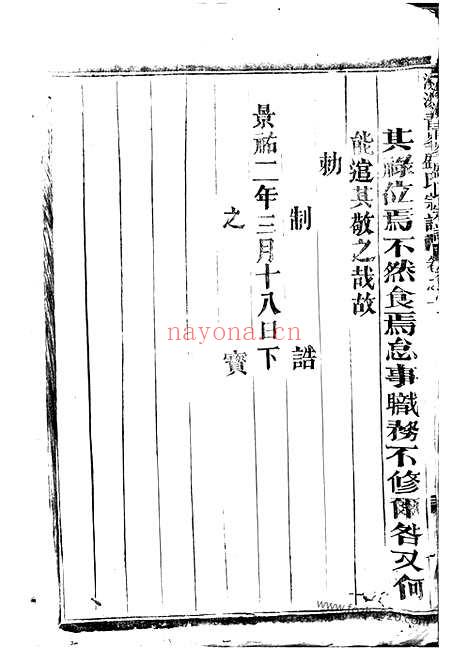 其祿位焉不然食焉怠事職務不修爾咎又何
能逭其敬之哉故
勅
制誥
景祐二年三月十八日下
之寶
nayona.cn